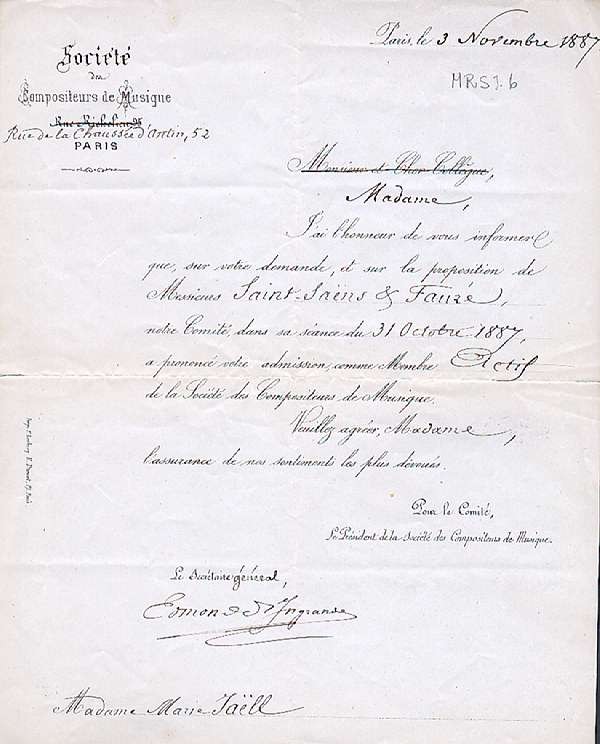 Paris, le 3 Novembre 1887
MRSJ. 6
Société
des
Compositeurs de Musique
Rue Richelieu, 95
Rue de la Chaussée d'Antin, 52
PARIS
Monsieur et Cher Collègue,
Madame,
J'ai l'honneur de vous informer
que, sur votre demande, et sur la proposition de
Messieurs Saint-Saëns & Fauré,
notre Comité, dans sa séance du 31 Octobre 1887,
a prononcé votre admission comme Membre Actif
de la Société des Compositeurs de Musique.
Veuillez agréer, Madame,
l'assurance de nos sentiments les plus dévoués.
Pour le Comité,
Le Président de la Société des Compositeurs de Musique.
Le Secrétaire général,
Edmond d'Ingrande
Madame Marie Jaëll